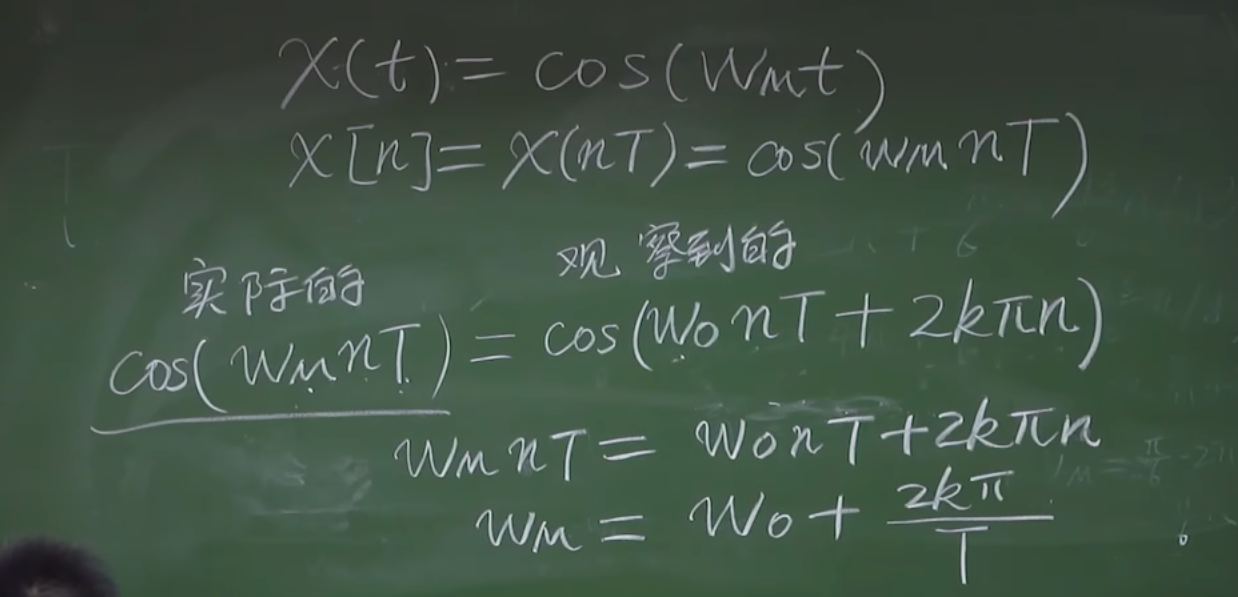 X(t) = cos(WMt)
X[n] = X(nT) = cos(WMnT)
实际的 观察到的
cos(WMnT) = cos(W0nT + 2kπn)
WMnT = W0nT + 2kπn
WM = W0 + 2kπ/T